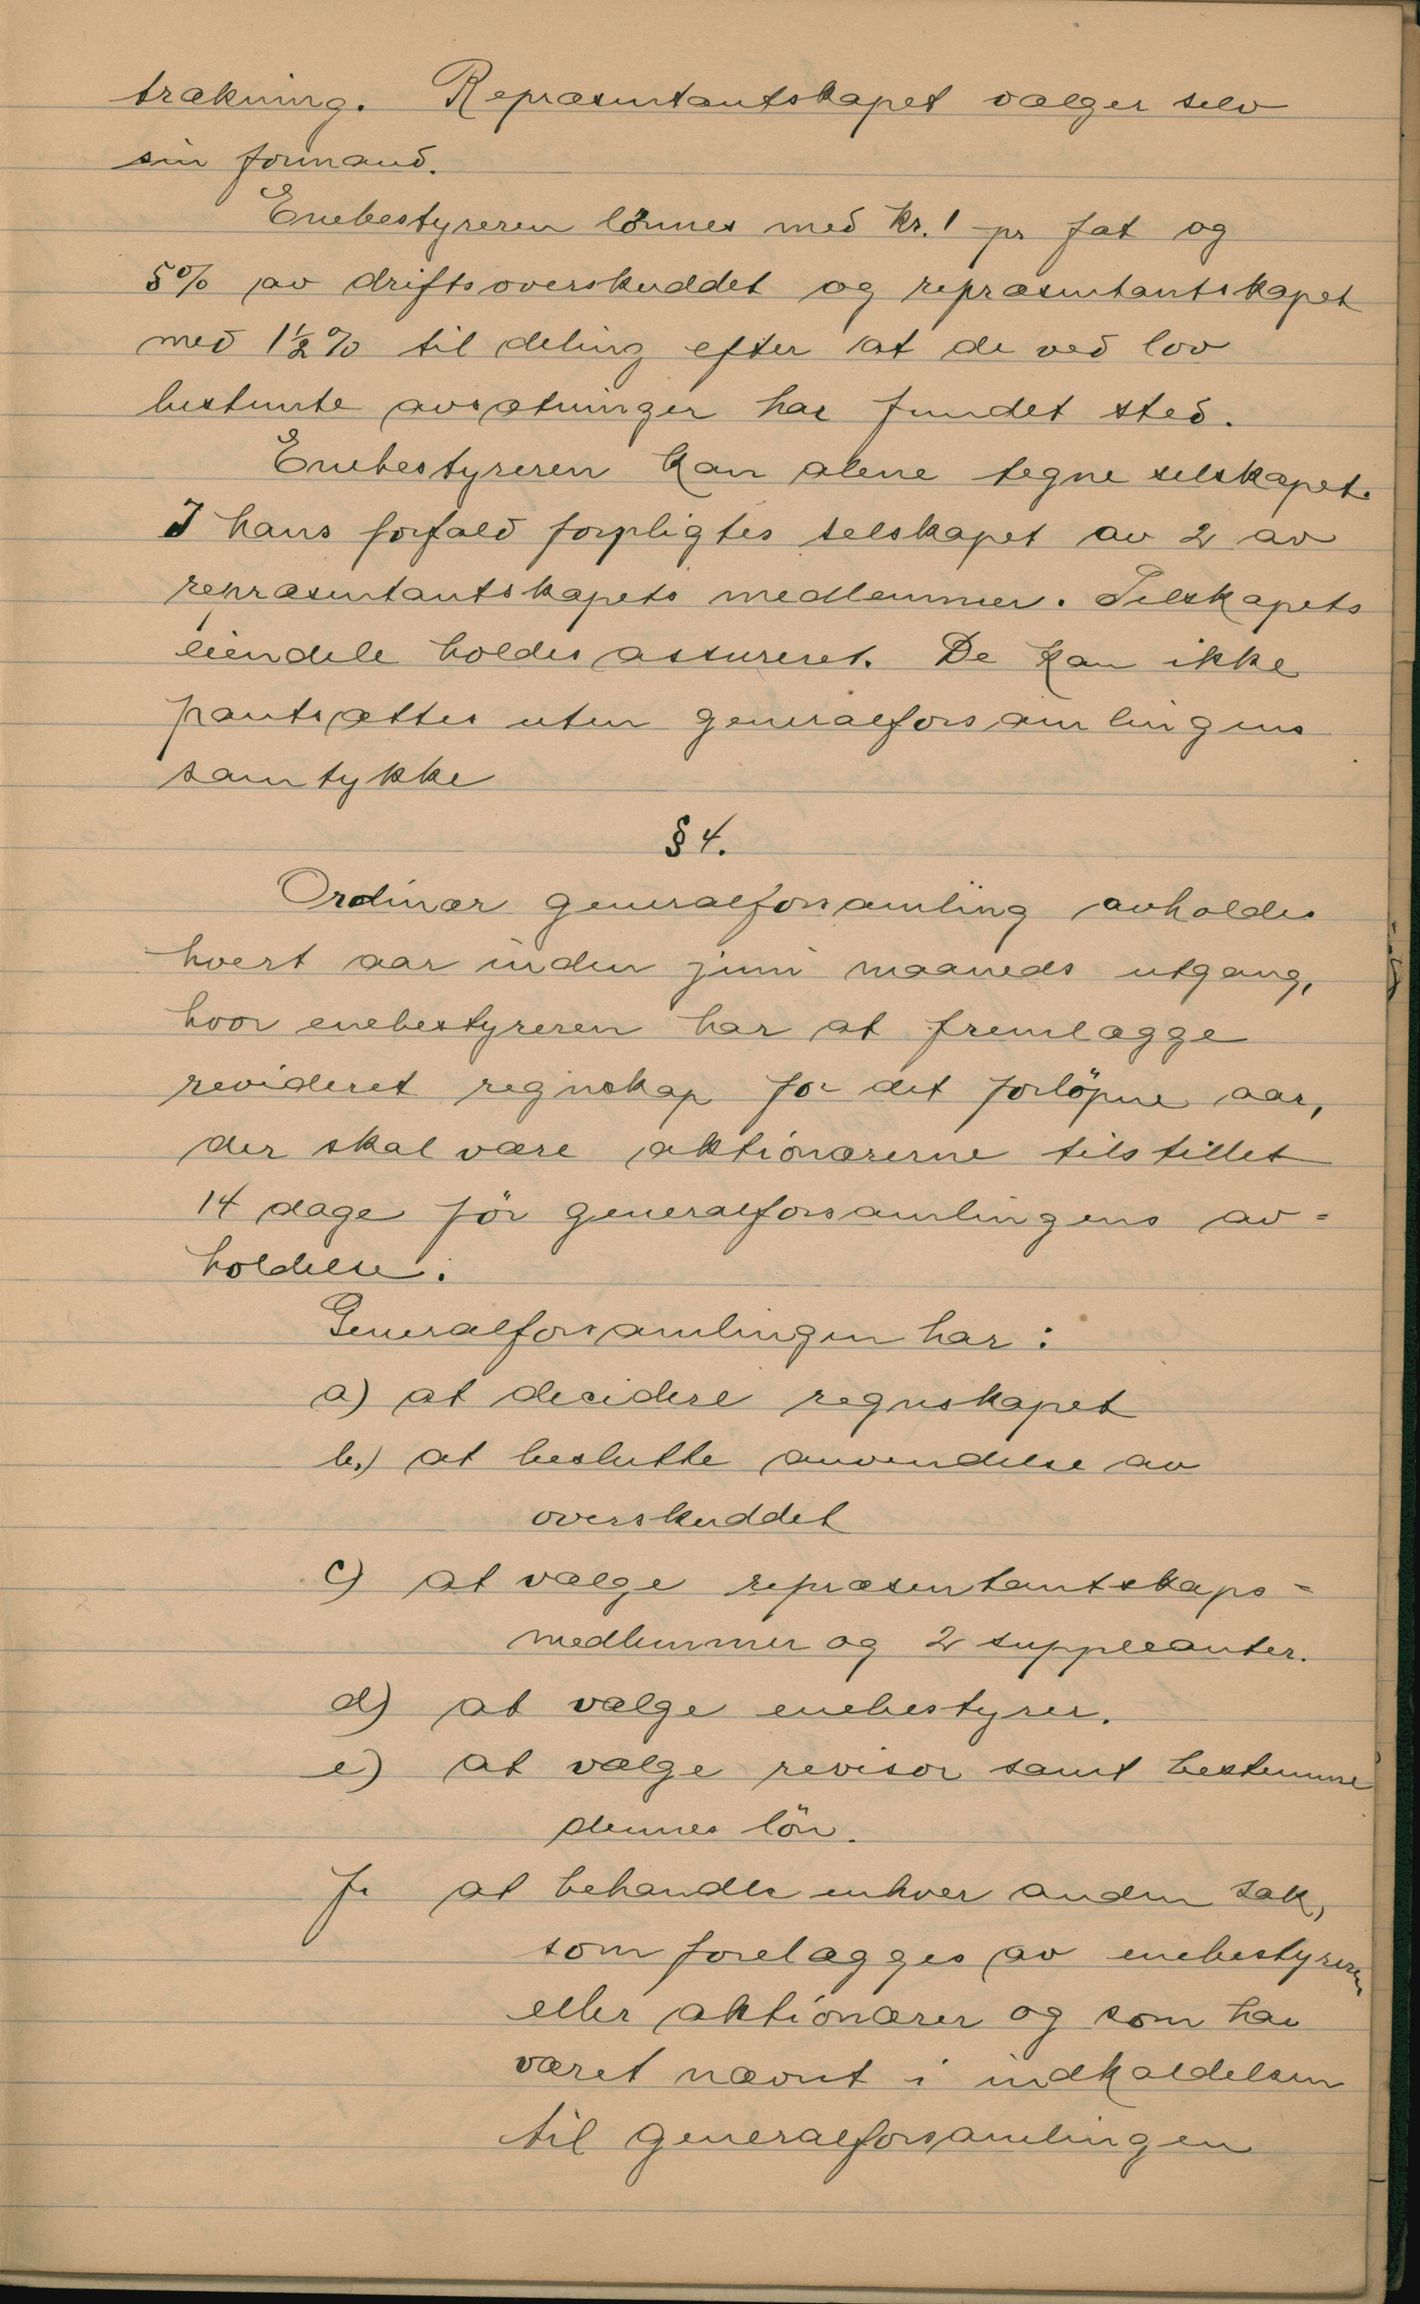 trækning. Repræsentantskapet vælger selv
sin formand.
Enebestyreren lönnes med kr. 1 pr fat og
5% av driftsoverskuddet og repræsentantskapet
med 1½% til deling efter at de ved lov
bestemte avsætninger har fundet sted.
Enebestyreren kan alene tegne selskapet.
I hans forfald forpligtes selskapet av 2 av
repræsentantskapets medlemmer. Selskapets
eiendele holdes assureret. De kan ikke
pantsættes uten generalforsamlingens
samtykke
§ 4.
Ordinær generalforsamling avholdes
hvert aar inden juni maaneds utgang,
hvor enebestyreren har at fremlægge
revideret regnskap for det forlöpne aar,
der skal være aktionærerne tilstillet
14 dage för generalforsamlingens av=
holdelse.
Generalforsamlingen har:
a) at decidere regnskapet
b.) at beslutte anvendelse av
overskuddet
c) at vælge repræsentantskaps=
medlemmer og 2 suppleanter.
d) at vælge enebestyrer.
e) at vælge revisor samt bestemme
dennes lön.
f. at behandle enhver anden sak,
som forelægges av enebestyreren
eller aktionærer og som har
været nævnt i indkaldelsen
til generalforsamlingen